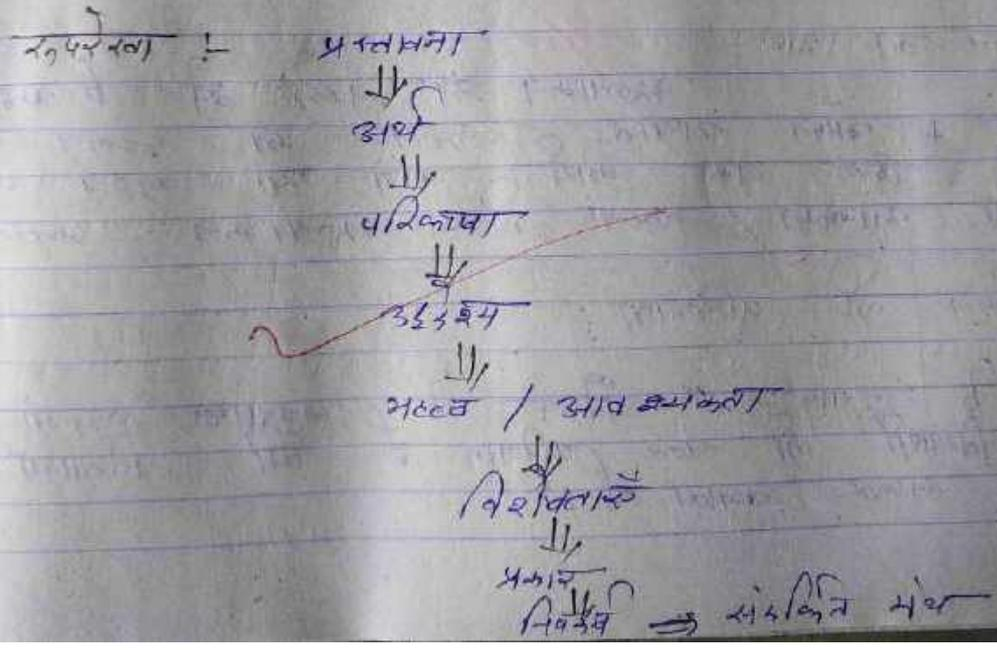 रूपरेखा :- प्रस्तावना
अर्थ
परिभाषा
उद्देश्य
महत्व / आवश्यकता
विशेषताएँ
प्रकार
निष्कर्ष ⇒ संदर्भित ग्रंथ